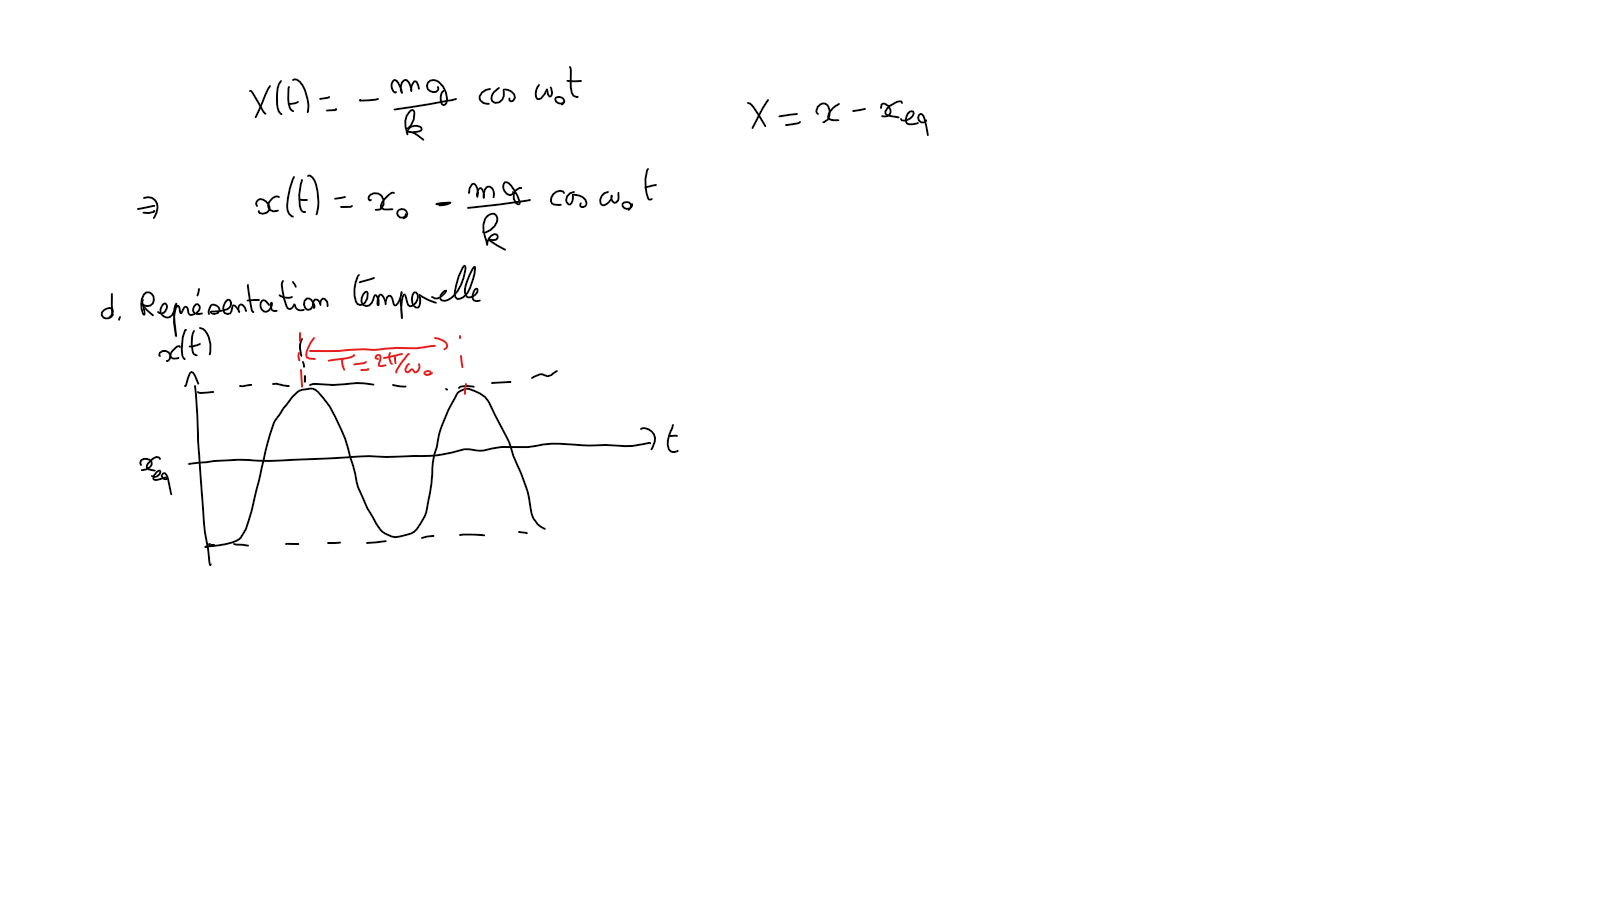 X(t) = - mg/k cos ω₀t
X = x - x_eq
⇒ x(t) = x₀ - mg/k cos ω₀t
d. Représentation temporelle
x(t)
T = 2π/ω₀
t
x_eq